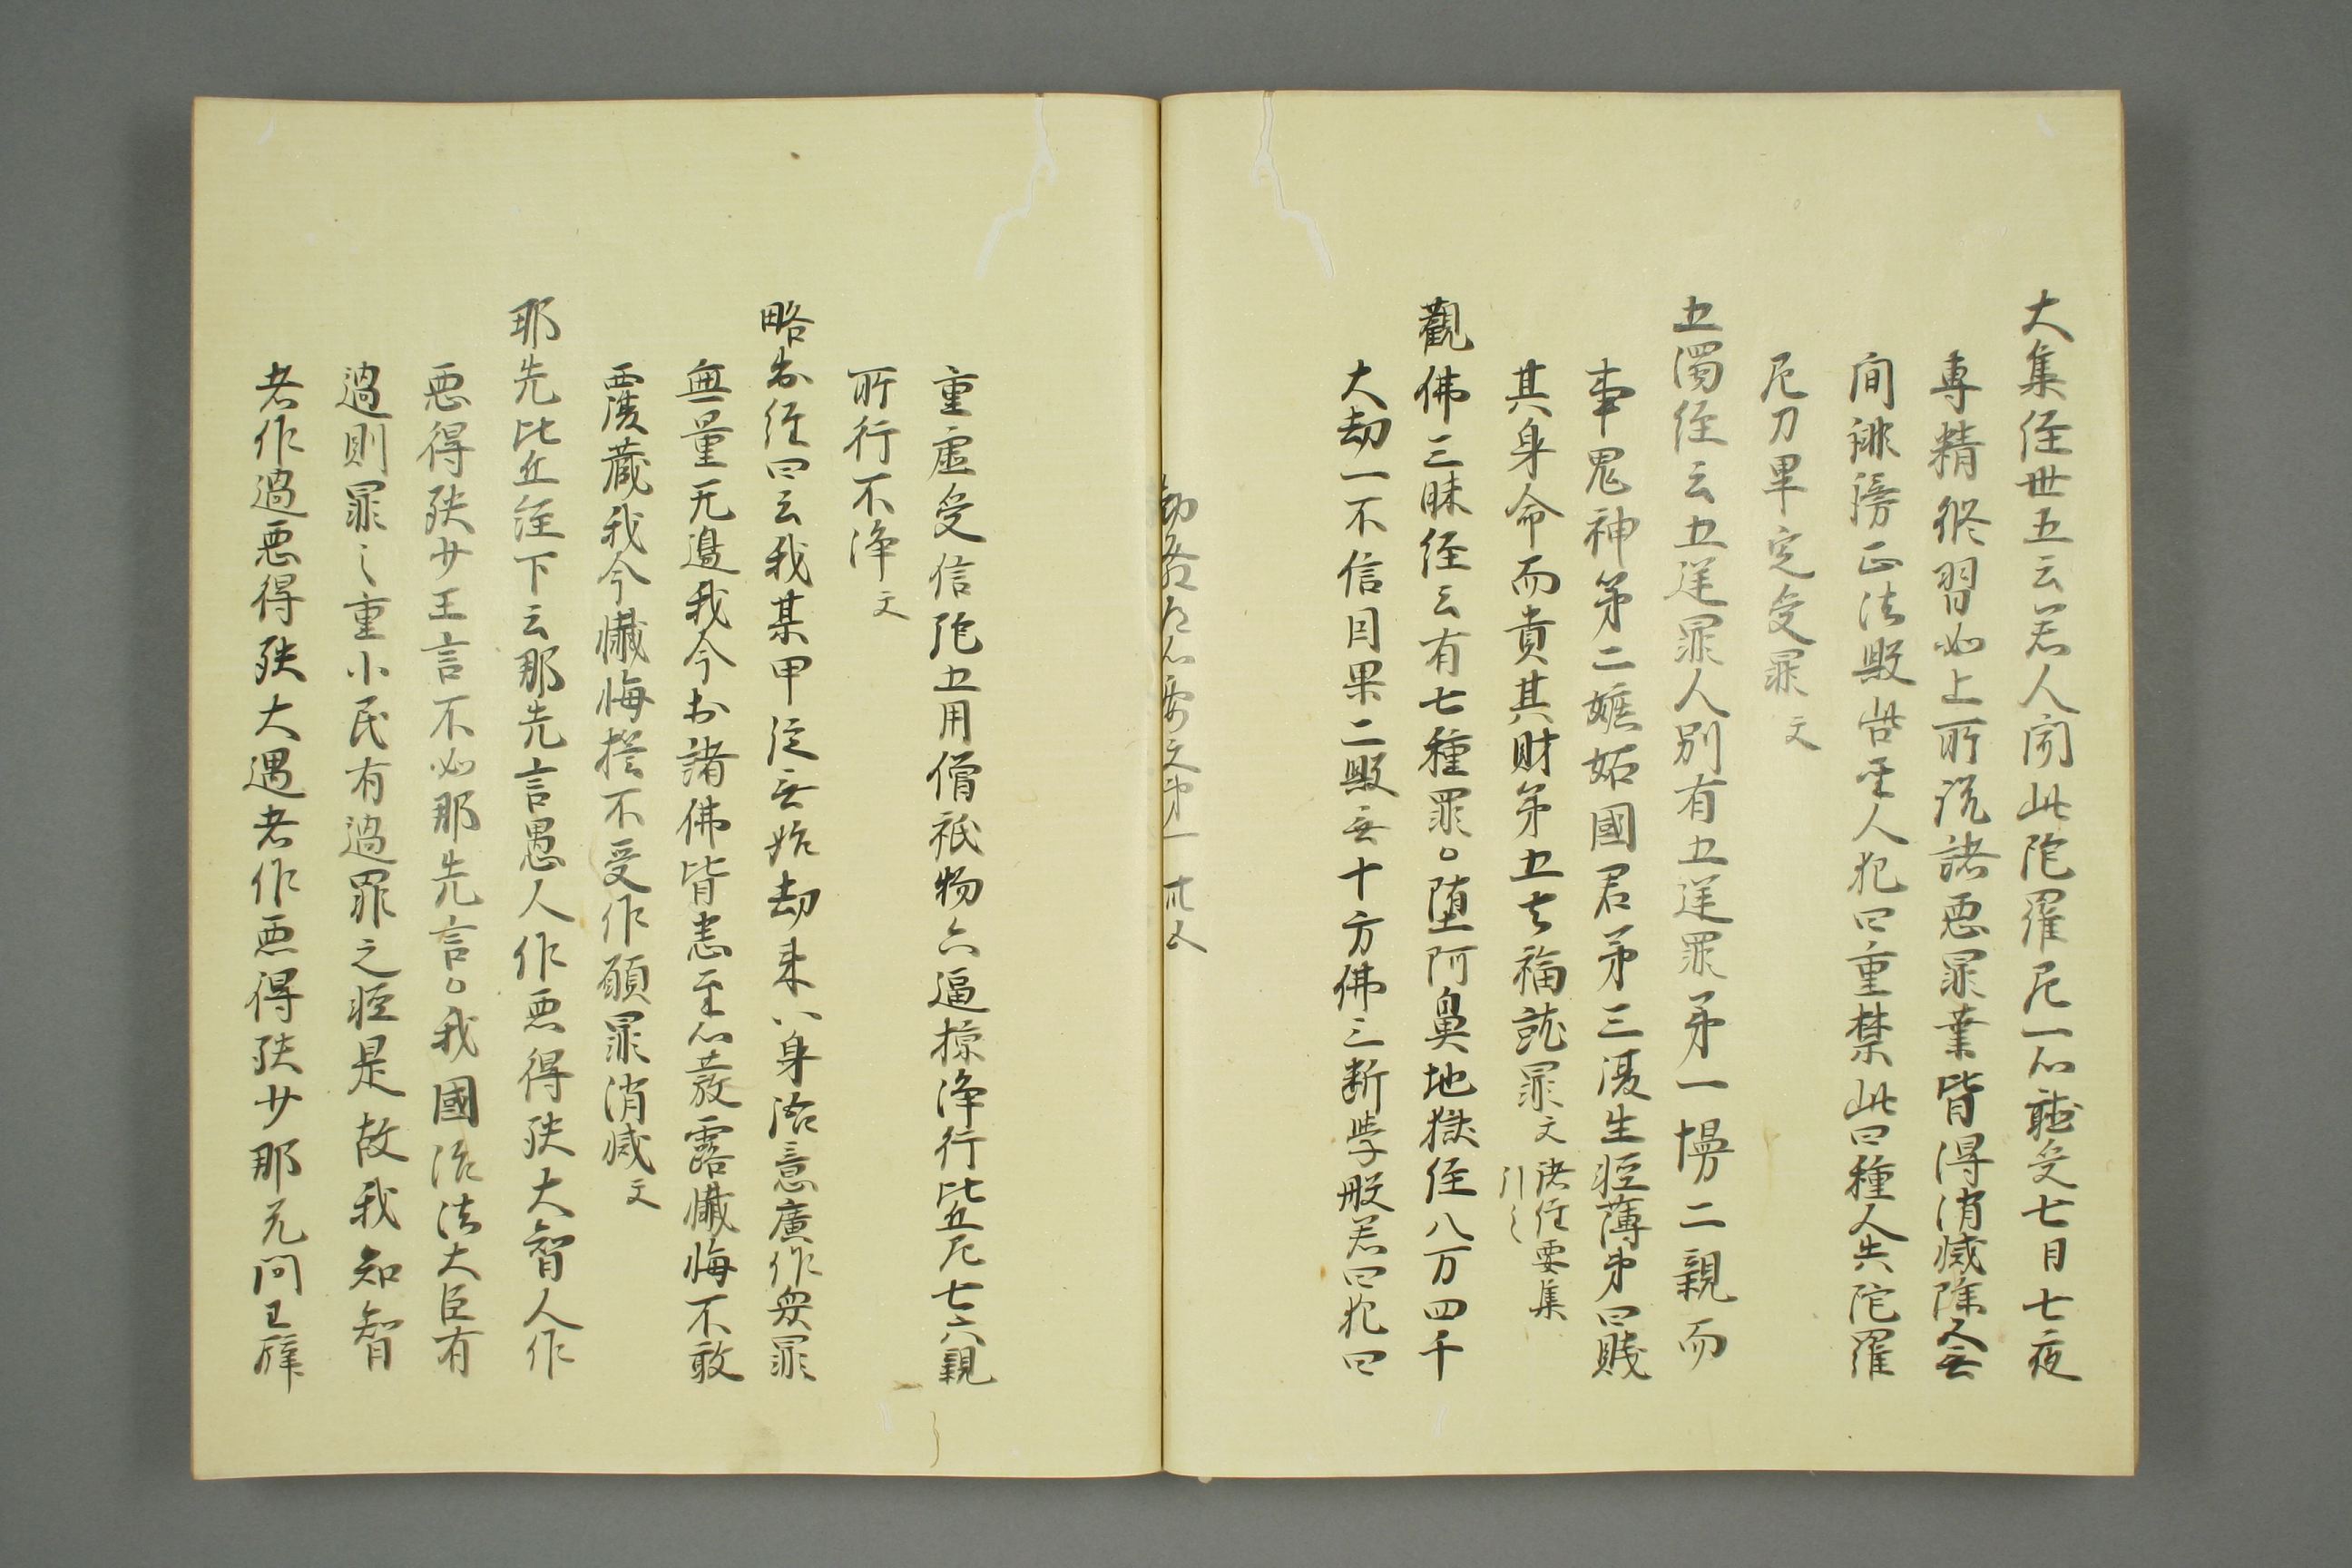 大集経卅五云若人聞此陀羅尼一心聴受七日七夜
専精修習如上所説諸悪罪業皆得消滅除無
間誹謗正法毀呰聖人犯四重禁此四種人共陀羅
尼刀畢定受罪文
五濁経云五逆罪人別有五逆罪第一慢二親而
事鬼神第二嫉妬國君第三復生軽薄第四賤
其身命而貴其財第五去福就罪文 諸経要集
引之
觀佛三昧経云有七種罪。堕阿鼻地獄経八万四千
大劫一不信因果二毀無十方佛三断学般若四犯四
要文第一
重虚受信施五用僧祇物六逼掠浄行比丘尼七六親
所行不浄文
略出経四云我某甲従無始劫来 身 意廣作衆罪
無量无邊我今於諸佛皆悉至心發露懺悔不敢
覆蔵我今懺悔 不受作願罪消滅文
那先比丘経下云那先言愚人作悪得殃大智人作
悪得殃少王言不如那先言。我國治法大臣有
過則罪之重小民有過罪之軽是故我知智
者作過悪得殃大 者作悪得殃少那先問王